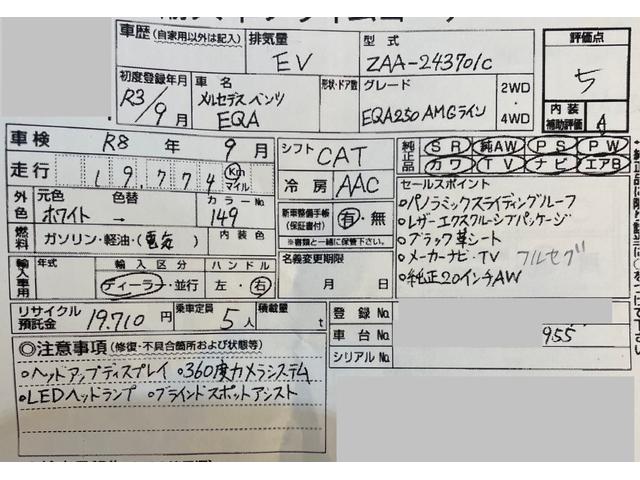 車歴 (自家用以外は記入) 排気量 EV 型式 ZAA-243701C 評価点 5
初度登録年月 R3/9月 車名 メルセデスベンツ EQA 形状・ドア数 グレード EQA250 AMGライン 2WD・4WD 内装補助評価 A
車検 R8年 9月 シフト CAT 純正品 SR 純AW PS PW
走行 19,774 Km マイル 冷房 AAC カワ TV ナビ エアB
外色 元色 ホワイト 色替 → カラーNo 149 新車整備手帳(保証書付) 有・無 ※書類と一緒に保管下さい。
燃料 ガソリン・軽油・(電気) 内装色 名義変更期限 月 日
セールスポイント
○パノラミックスライディングルーフ
○レザーエクスクルーシブパッケージ
○ブラック革シート
○メーカーナビ・TV フルセグ
○純正20インチAW
輸入車用 年式 輸入区分 ディーラー・並行 ハンドル 左・右
リサイクル預託金 19,710円 乗車定員 5人 積載量 t
登録No.
車台No. 955
シリアルNo.
◎注意事項 (修復・不具合箇所および状態等)
○ヘットアップディスプレイ ○360度カメラシステム
○LEDヘッドランプ ○ブラインドスポットアシスト